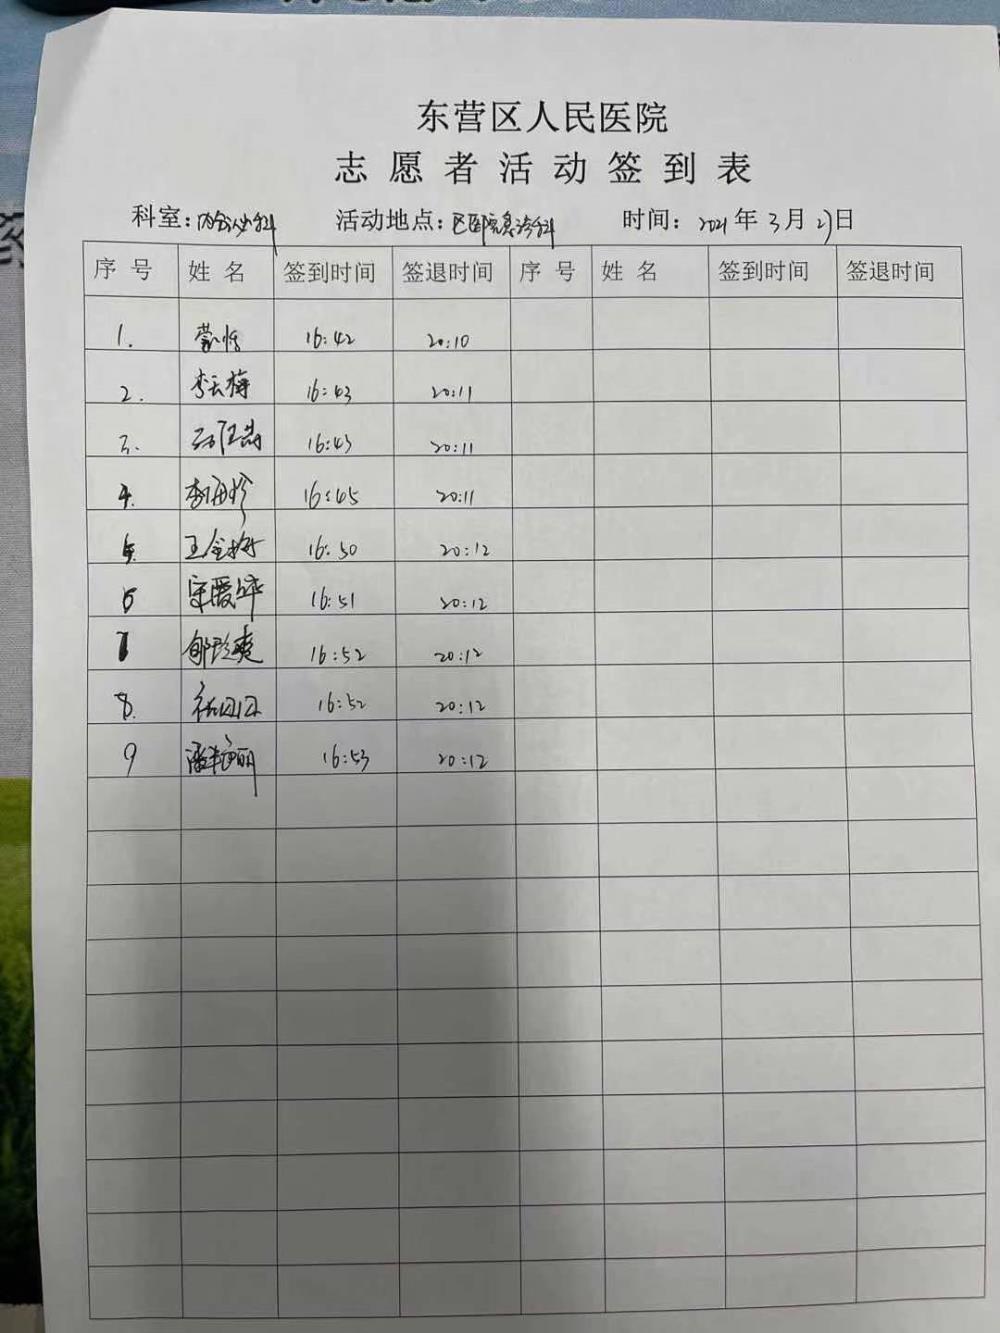 东营区人民医院
志愿者活动签到表
科室: 活动地点: 区 急诊科 时间: 2021年3月27日
序号 姓名 签到时间 签退时间 序号 姓名 签到时间 签退时间
1. 16:42 20:10
2. 李云梅 16:43 20:11
3. 16:43 20:11
4. 李海珍 16:45 20:11
5. 王金梅 16:50 20:12
6 宋爱华 16:51 20:12
7 郇珍爽 16:52 20:12
8. 16:52 20:12
9 潘艳丽 16:53 20:12